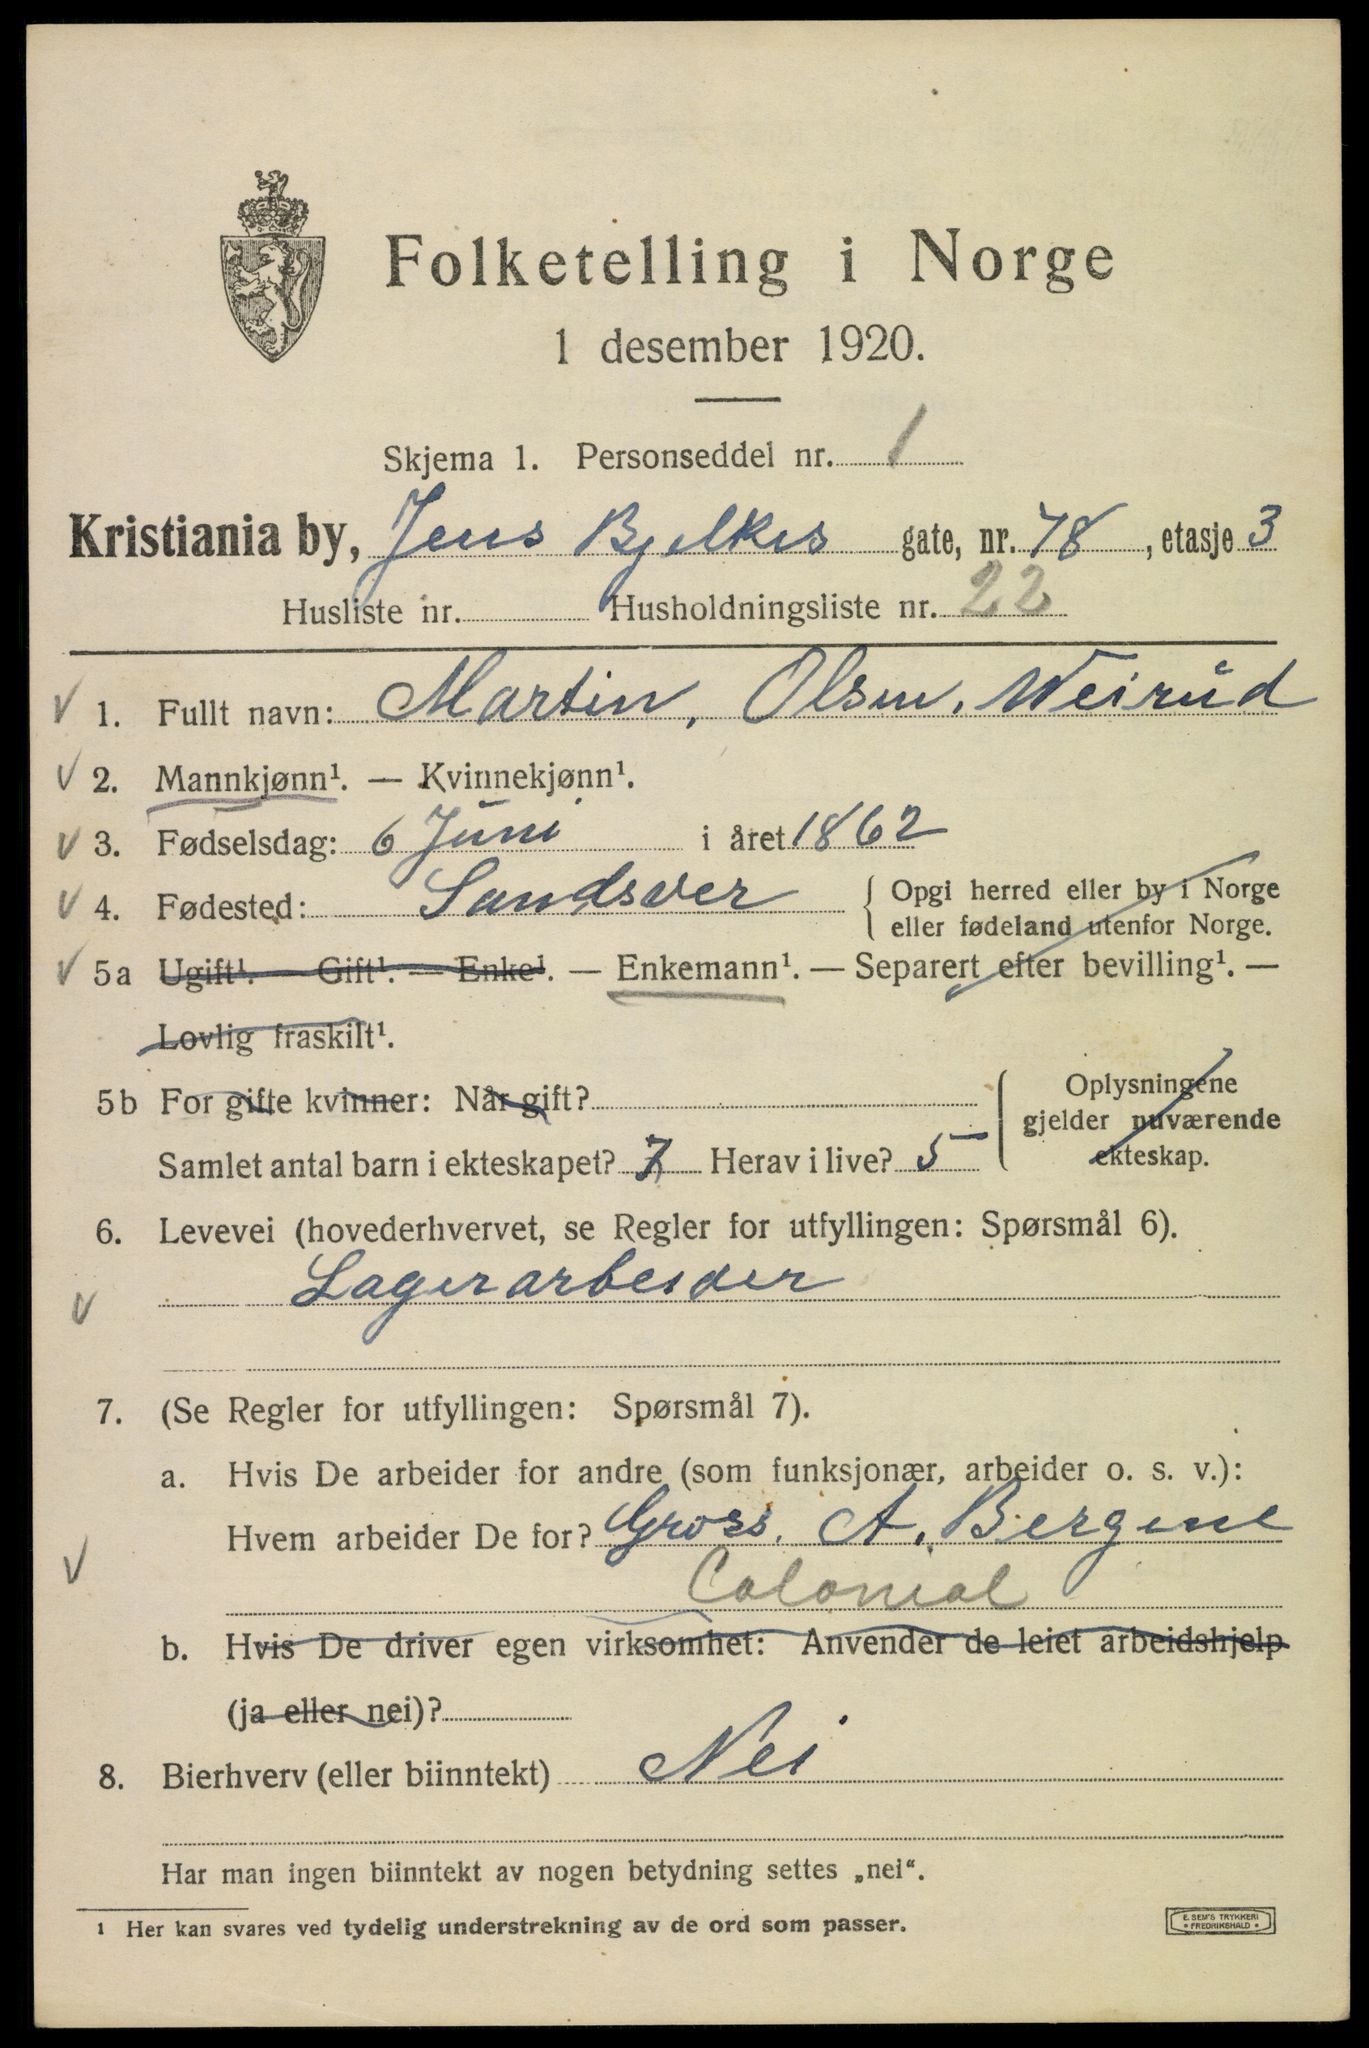 Folketelling i Norge
1 desember 1920.
Skjema 1. Personseddel nr. 1
Kristiania by, Jens Bjelkes gate, nr. 78, etasje 3
Husliste nr. Husholdningsliste nr. 22
√ 1. Fullt navn: Martin. Olsen. Weirud
√ 2. Mannkjønn¹. — Kvinnekjønn¹.
√ 3. Fødselsdag: 6 Juni i året 1862
√ 4. Fødested: Sandsver { Opgi herred eller by i Norge
eller fødeland utenfor Norge.
√ 5a Ugift¹. — Gift¹. — Enke¹. — Enkemann¹. — Separert efter bevilling¹. —
Lovlig fraskilt¹.
5b For gifte kvinner: Når gift? { Oplysningene
gjelder nuværende
Samlet antal barn i ekteskapet? 7 Herav i live? 5 ekteskap.
6. Levevei (hovederhvervet, se Regler for utfyllingen: Spørsmål 6).
√ Lagerarbeider
7. (Se Regler for utfyllingen: Spørsmål 7).
a. Hvis De arbeider for andre (som funksjonær, arbeider o. s. v.):
Hvem arbeider De for? Gross. A. Bergene
√ Colonial
b. Hvis De driver egen virksomhet: Anvender de leiet arbeidshjelp
(ja eller nei)?
8. Bierhverv (eller biinntekt) Nei
Har man ingen biinntekt av nogen betydning settes „nei“.
¹ Her kan svares ved tydelig understrekning av de ord som passer.
E. SEM'S TRYKKERI
• FREDRIKSHALD •